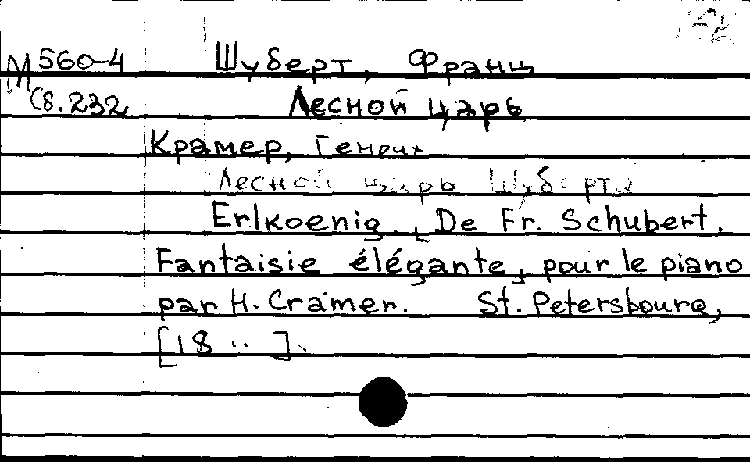 М 560-4 Шуберт, Франц
С8.232 Лесной царь
Крамер, Генрих
Лесной царь Шуберта
Erlkoenig. [De Fr. Schubert.
Fantaisie élégante, pour le piano
par H. Cramer. St. Petersbourg,
[18 ..].